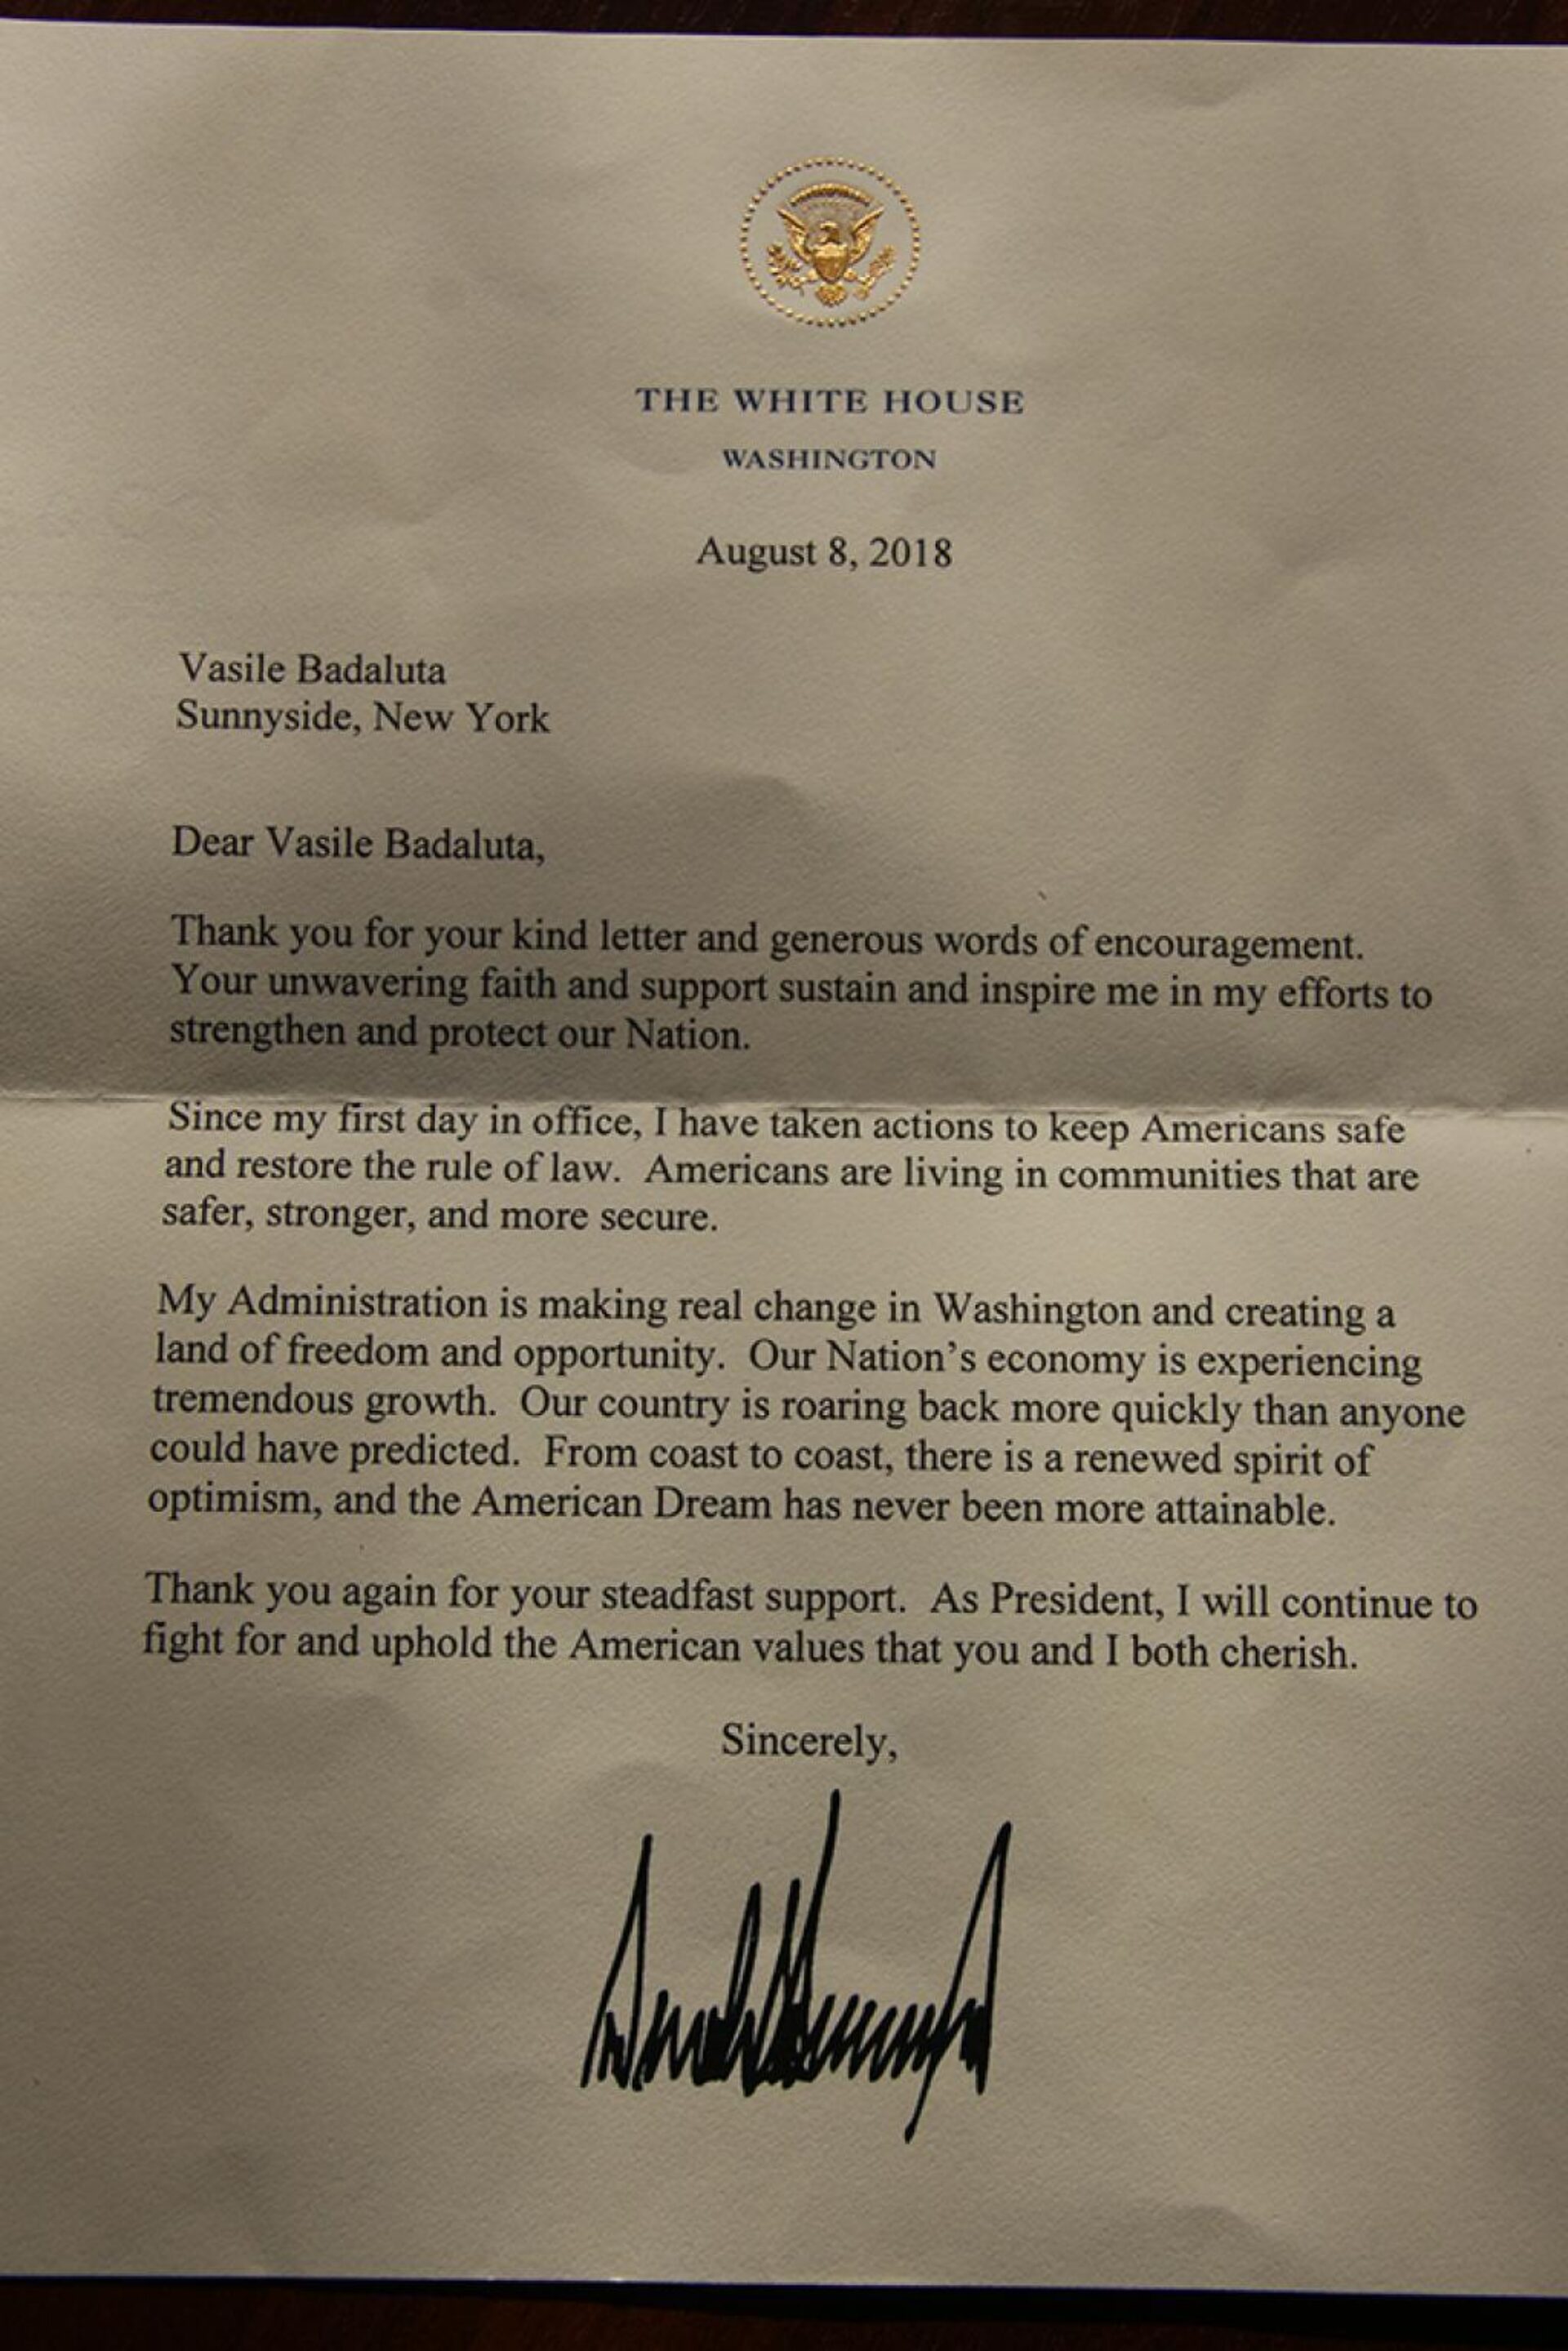 THE WHITE HOUSE
WASHINGTON
August 8, 2018
Vasile Badaluta
Sunnyside, New York
Dear Vasile Badaluta,
Thank you for your kind letter and generous words of encouragement.
Your unwavering faith and support sustain and inspire me in my efforts to
strengthen and protect our Nation.
Since my first day in office, I have taken actions to keep Americans safe
and restore the rule of law. Americans are living in communities that are
safer, stronger, and more secure.
My Administration is making real change in Washington and creating a
land of freedom and opportunity. Our Nation’s economy is experiencing
tremendous growth. Our country is roaring back more quickly than anyone
could have predicted. From coast to coast, there is a renewed spirit of
optimism, and the American Dream has never been more attainable.
Thank you again for your steadfast support. As President, I will continue to
fight for and uphold the American values that you and I both cherish.
Sincerely,